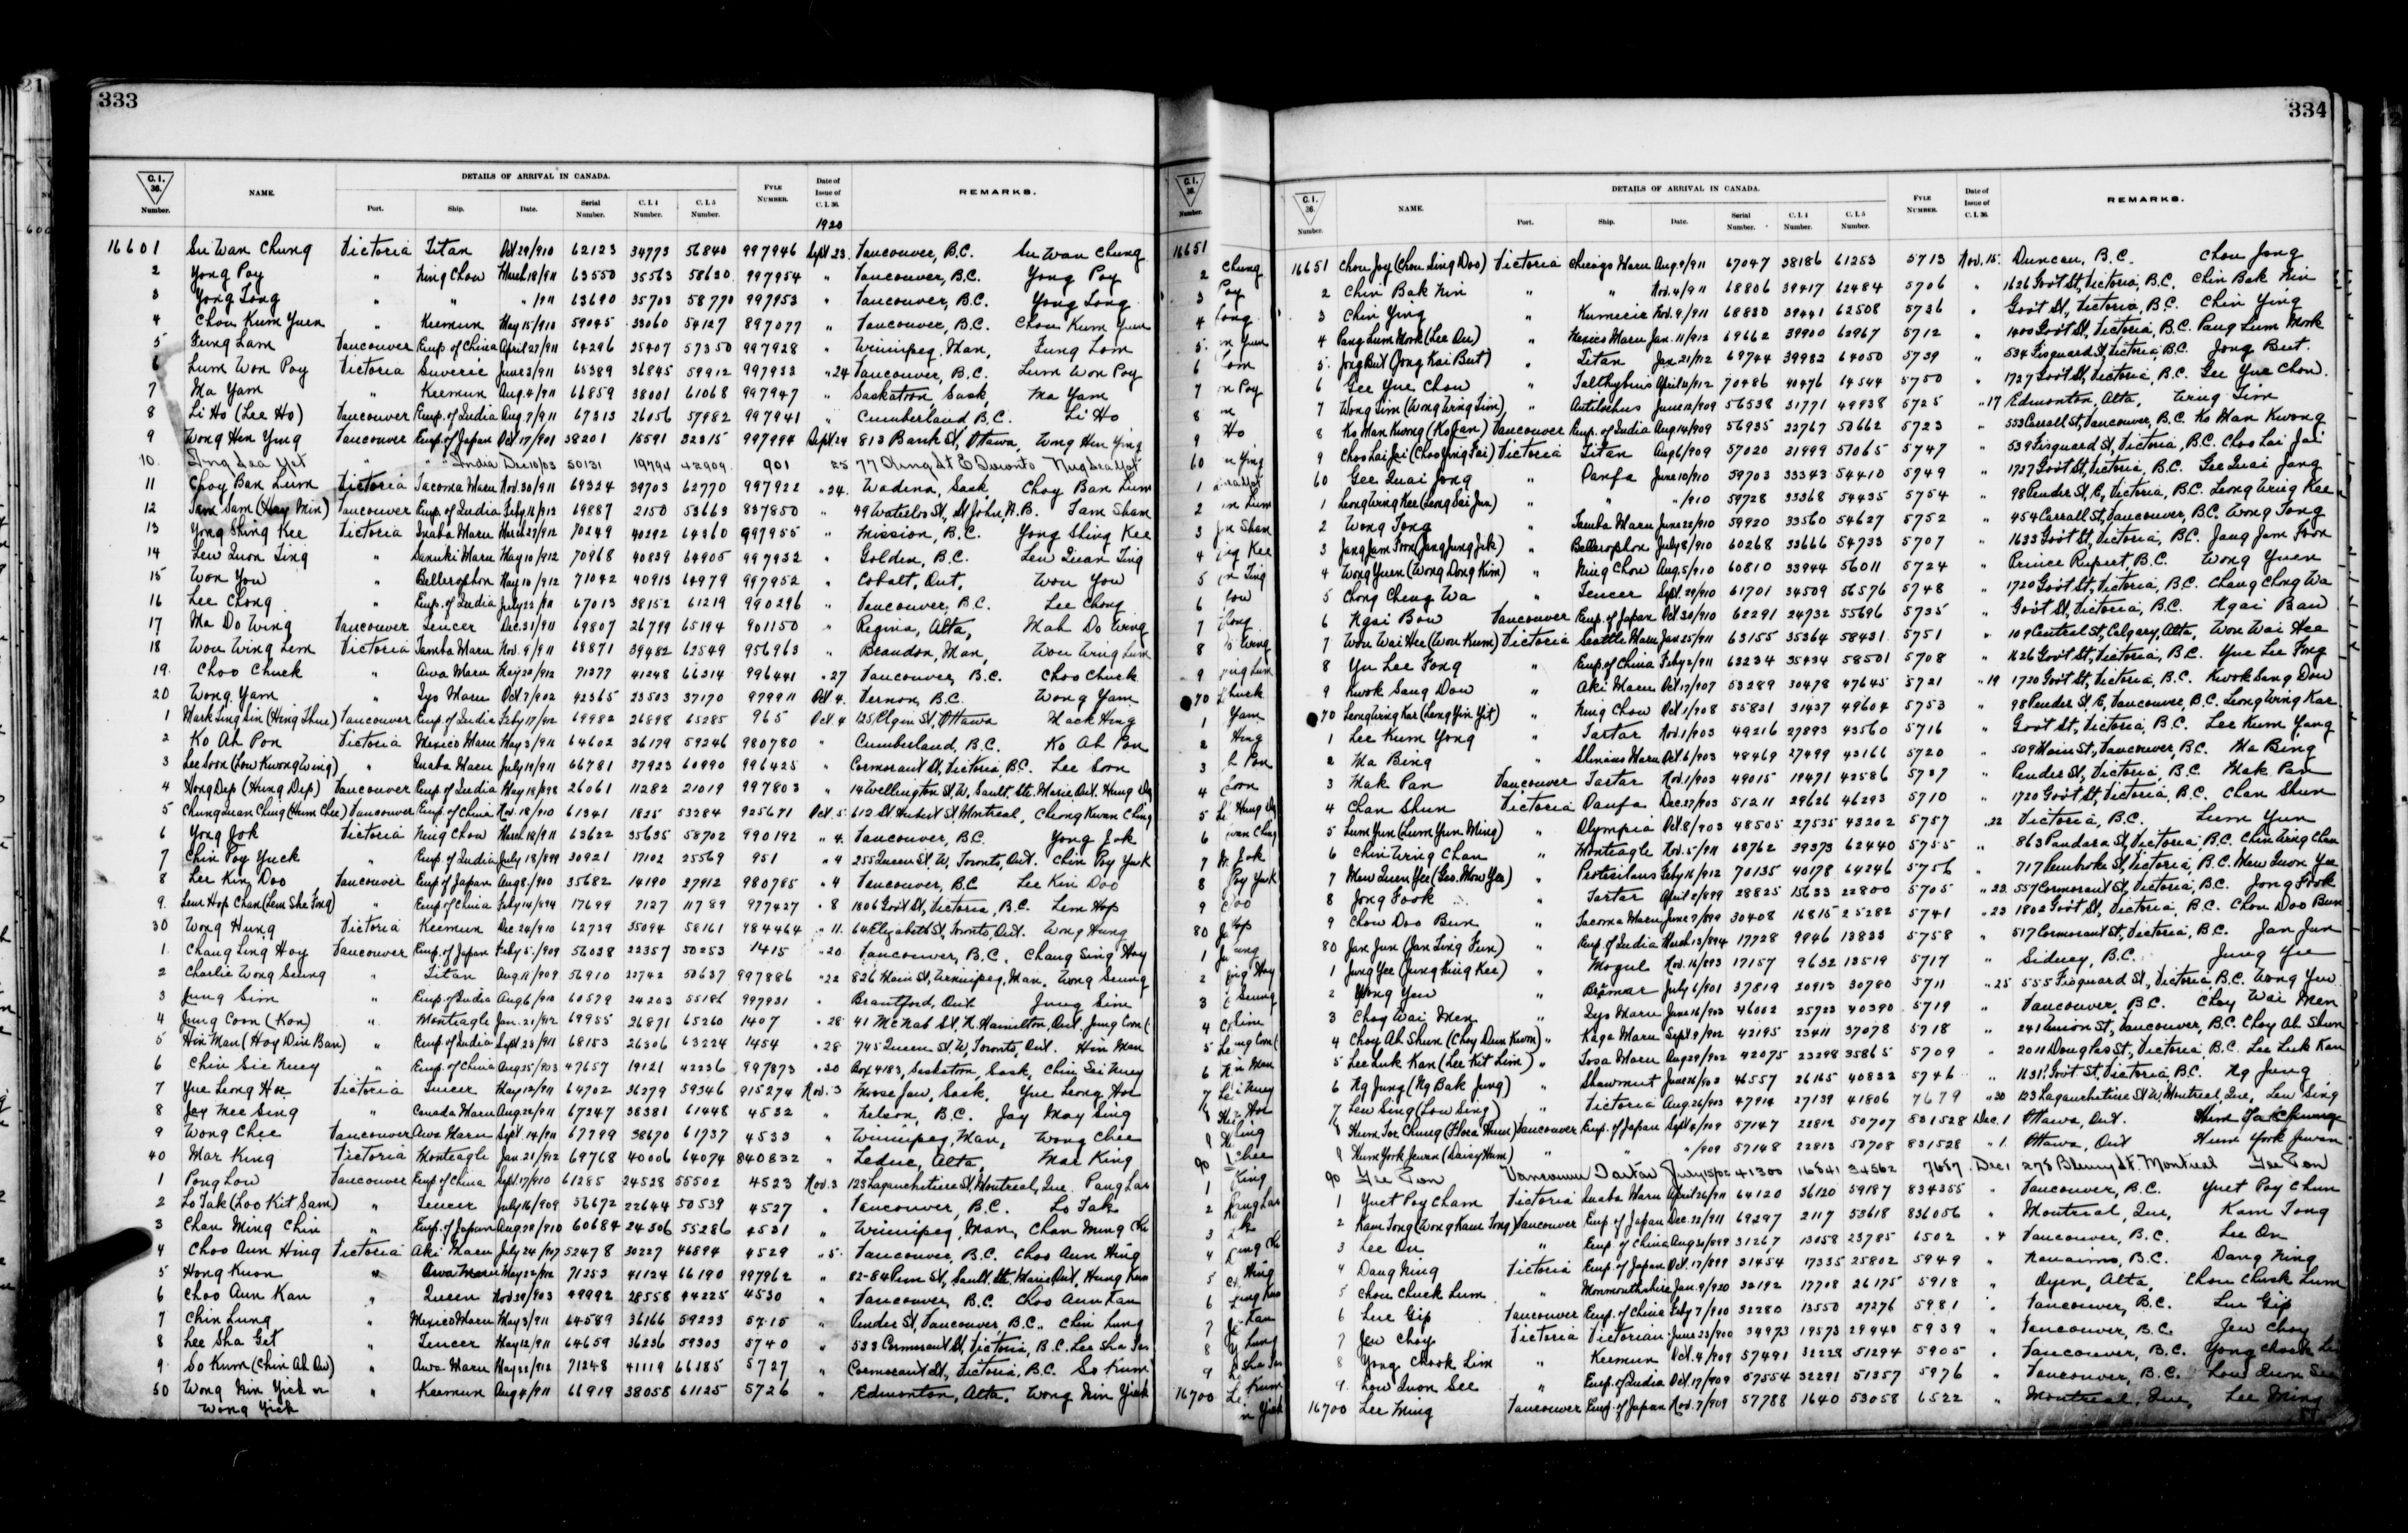 333
C.I. 36. Number. NAME. DETAILS OF ARRIVAL IN CANADA. Port. Ship. Date. Serial Number. C.I.4 Number. C.I.5 Number. FYLE NUMBER. Date of Issue of C.I.36. 1920 REMARKS.
16601 Su Wan Chung Victoria Titan Oct 29/910 62123 34773 56840 997946 Sept 23. Vancouver, B.C. Su Wan Chung
2 Yong Poy " Ning Chow March 18/911 63550 35563 58630 997954 " Vancouver, B.C. Yong Poy
3 Yong Long " " " /911 63690 35703 58770 997953 " Vancouver, B.C. Yong Long
4 Chou Kum Yuen " Keemun May 15/910 59045 33060 54127 897077 " Vancouver, B.C. Chou Kum Yuen
5 Fung Lam Vancouver Emp. of China April 27/911 64296 25407 57350 997928 " Winnipeg, Man, Fung Lam
6 Lum Won Poy Victoria Suveric June 3/911 65389 36845 59912 997933 " 24 Vancouver, B.C. Lum Won Poy
7 Ma Yam " Keemun Aug. 4/911 66859 38001 61068 997947 " Saskatoon, Sask, Ma Yam
8 Li Ho (Lee Ho) Vancouver Emp. of India Aug. 7/911 67313 26056 57982 997941 " Cumberland B.C. Li Ho
9 Wong Hen Ying Vancouver Emp. of Japan Oct 17/901 38201 15591 32315 997994 Sept 24 813 Bank St, Ottawa, Wong Hen Ying
10. " " India Dec 10/03 50131 19794 42909 901 25 77 St E Toronto
11 Choy Ban Lum Victoria Tacoma Maru Nov. 30/911 69324 39703 62770 997922 " 24. Wadena, Sask, Choy Ban Lum
12 Tam Sam (Hay Min) Vancouver Emp. of India Feby. 16/912 69887 2150 53663 837850 " 49 Waterloo St, St John, N.B. Tam Sham
13 Yong Shing Kee Victoria Inaba Maru March 27/912 70249 40292 64360 997955 " Mission, B.C. Yong Shing Kee
14 Lew Quon Ting " Sanuki Maru May 10/912 70968 40839 64905 997932 " Golden, B.C. Lew Quan Ting
15 Won You " Bellerophon May 10/912 71042 40913 64979 997952 " Cobalt, Ont, Won You
16 Lee Chong " Emp. of India July 22/911 67013 38152 61219 990296 " Vancouver, B.C. Lee Chong
17 Ma Do Wing Vancouver Tencer Dec. 21/911 69807 26799 65194 901150 " Regina, Alta, Mah Do Wing
18 Wou Wing Lem Victoria Tamba Maru Nov. 9/911 68871 39482 62549 956963 " Brandon, Man, Wou Wing Lum
19. Choo Chuck " Awa Maru May 20/912 71377 41248 66314 996441 " 27 Vancouver, B.C. Choo Chuck
20 Wong Yam " Iyo Maru Oct 7/902 42365 23503 37170 979911 Oct 4. Vernon, B.C. Wong Yam
1 Mark Ling Sin (Hing Thue) Vancouver Emp. of India Feby 17/912 69982 26898 65285 965 Oct. 4 125 Elgin St, Ottawa Mack Hing
2 Ko Ah Pon Victoria Mexico Maru May 3/911 64602 36179 59246 980780 " Cumberland, B.C. Ko Ah Pon
3 Lee Soon (Low Kwong Wing) " Inaba Maru July 19/911 66781 37923 60990 996425 " Cormorant St, Victoria, B.C. Lee Soon
4 Hong Dep (Hung Dep) Vancouver Emp. of India May 18/898 26061 11282 21019 997803 " 14 Wellington St, W, Sault. Ste. Marie, Ont. Hung Dep
5 Chung Quan Ching (Hum Chee) Vancouver Emp. of China Nov. 18/910 61341 1825 53284 925671 Oct. 5 612 St. Hubert St Montreal, Cheong Kwan Ching
6 Yong Jok Victoria Ning Chow March 18/911 63622 35635 58702 990142 " 4. Vancouver, B.C. Yong Jok
7 Chin Poy Yuck " Emp. of India July 18/899 30921 17102 25569 951 " 4 255 Queen St. W, Toronto, Ont. Chin Poy Yuck
8 Lee Kin Doo Vancouver Emp. of Japan Aug 8/900 35682 14190 27912 980785 " 4 Vancouver, B.C. Lee Kin Doo
9. Lem Hop Chan (Lem She Fong) " Emp. of China Feby 14/894 17699 7127 11789 977427 " 8 1806 Gov't St, Victoria, B.C. Lem Hop
30 Wong Hung Victoria Keemun Dec 24/910 62739 35094 58161 984464 " 11. 64 Elizabeth St, Toronto, Ont. Wong Hung
1. Chang Ling Hoy Vancouver Emp. of Japan Feby 5/909 56038 22357 50253 1415 " 20 Vancouver, B.C. Chang Sing Hoy
2 Charlie Wong Seung " Titan Aug. 11/909 56910 22742 50637 997886 " 22 826 Main St, Winnipeg, Man, Wong Seung
3 Jung Sim " Emp. of India Aug 6/910 60579 24203 55186 997931 " Brantford, Ont Jung Sim
4 Jung Coon (Kon) " Monteagle Jan. 21/912 69955 26871 65260 1407 " 28 41 McNab St. N. Hamilton, Ont. Jung Coon (
5 Hin Man (Hoy Din Ban) " Emp. of India Sept 23/911 68153 26306 63224 1454 " 28 745 Queen St. W, Toronto, Ont. Hin Man
6 Chin Sic Nuey " Emp. of China Aug 25/903 47657 19121 42236 997873 " 20 Box 4183, Saskatoon, Sask, Chin Sic Nuey
7 Yue Leong Hoe Victoria Tencer May 12/911 64702 36279 59346 915274 Nov. 3 Moose Jaw, Sask. Yue Leong Hoe
8 Jay Mee Sing " Canada Maru Aug. 22/911 67247 38381 61448 4532 " Nelson, B.C. Jay May Sing
9 Wong Chee Vancouver Awa Maru Sept. 14/911 67799 38670 61737 4533 " Winnipeg, Man, Wong Chee
40 Mar King Victoria Monteagle Jan 21/912 69768 40006 64074 840832 " Leduc, Alta, Mar King
1 Pong Low Vancouver Emp. of China Sept 17/910 61285 24528 55502 4523 Nov. 3 123 Lagauchetiere St, Montreal, Que. Pang Lar
2 Lo Tak (Loo Kit Sam) " Tencer July 16/909 56672 22644 50539 4527 " Vancouver, B.C. Lo Tak
3 Chan Ming Chin " Emp. of Japan Aug. 28/910 60684 24306 55286 4531 " Winnipeg, Man, Chan Ming Chi
4 Choo Aun Hing Victoria Aki Maru July 24/907 52478 30227 46894 4529 " 5. Vancouver, B.C. Choo Aun Hing
5 Hong Kuon " Awa Maru May 22/912 71253 41124 66190 997962 " 82-84 Pim St, Sault. Ste. Marie, Ont, Hung Kuo
6 Choo Aun Kan " Queen Nov. 29/903 49992 28558 44225 4530 " Vancouver, B.C. Choo Aun Kan
7 Chin Lung " Mexico Maru May 3/911 64589 36166 59233 5715 " Pender St, Vancouver, B.C. Chin Lung
8 Lee Sha Get " Tencer May 12/911 64659 36236 59303 5740 " 533 Cormorant St, Victoria, B.C. Lee Sha
9. So Kum (Chin Ah Ow) " Awa Maru May 22/912 71248 41119 66185 5727 " Cormorant St, Victoria, B.C. So Kum
50 Wong Nin Yick or " Keemun Aug 4/911 66919 38058 61125 5726 " Edmonton, Alta, Wong Nin Yick
Wong Yick
334
C.I. 36. Number. NAME. DETAILS OF ARRIVAL IN CANADA. Port. Ship. Date. Serial Number. C.I.4 Number. C.I.5 Number. FYLE NUMBER. Date of Issue of C.I.36. REMARKS.
16651 Chou Joy (Chou Sing Doo) Victoria Chicago Maru Aug. 9/911 67047 38186 61253 5713 Nov. 15. Duncan, B.C. Chou Jong
2 Chin Bak Nin " " Nov. 4/911 68806 39417 62484 5706 " 1626 Gov't St, Victoria, B.C. Chin Bak Nin
3 Chin Ying " Kumeric Nov. 9/911 68830 39441 62508 5736 " Gov't St, Victoria, B.C. Chin Ying
4 Pang Lum Mook (Lee On) " Mexico Maru Jan. 11/912 69662 39900 62967 5712 " 1400 Gov't St, Victoria, B.C. Pang Lum Mook
5. Jong But (Jong Kai But) " Titan Jan 21/912 69744 39982 64050 5739 " 534 Fisguard St, Victoria, B.C. Jong But.
6 Gee Yue Chou " Talthybius April 11/912 70486 40476 64544 5750 " 1727 Gov't St, Victoria, B.C. Gee Yue Chou.
7 Wong Sim (Wong Wing Sim) " Antilochus June 12/909 56538 31771 49938 5725 " 17 Edmonton, Alta, Wing Sim
8 Ko Man Kwong (Ko Jan) Vancouver Emp. of India Aug 14/909 56935 22767 50662 5723 " 533 Carrall St, Vancouver, B.C. Ko Man Kwong
9 Choo Lai Jai (Choo Jing Fai) Victoria Titan Aug 6/909 57020 31999 51065 5747 " 539 Fisguard St, Victoria, B.C. Choo Lai Jai
60 Gee Quai Jong " Oanfa June 10/910 59703 33343 54410 5749 " 1727 Gov't St, Victoria, B.C. Gee Quai Jong
1 Leong Wing Kee (Leong Sai Jun) " " " /910 59728 33368 54435 5754 " 98 Pender St, E, Victoria, B.C. Leong Wing Kee
2 Wong Tong " Tamba Maru June 22/910 59920 33560 54627 5752 " 454 Carrall St, Vancouver, B.C. Wong Tong
3 Jang Jam Foon (Jang Jung Jik) " Bellerophon July 8/910 60268 33666 54733 5707 " 1633 Gov't St, Victoria, B.C. Jang Jam Foon
4 Wong Yuen (Wong Dong Kim) " Ning Chow Aug. 5/910 60810 33944 56011 5724 " Prince Rupert, B.C. Wong Yuen
5 Chong Cheng Wa " Tencer Sept. 29/910 61701 34509 56576 5748 " 1720 Gov't St, Victoria, B.C. Chang Chong Wa
6 Ngai Bow Vancouver Emp. of Japan Oct. 30/910 62291 24732 55696 5735 " Gov't St, Victoria, B.C. Ngai Bau
7 Wou Wai Hee (Wou Kum) Victoria Seattle Maru Jan 25/911 63155 35364 58431 5751 " 109 Central St, Calgary, Alta, Wou Wai Hee
8 Yu Lee Fong " Emp. of China Feby 2/911 63234 35434 58501 5708 " 1626 Gov't St, Victoria, B.C. Yue Lee Fong
9 Kwok Sang Dow " Aki Maru Oct 17/907 53289 30478 47645 5721 " 19 1720 Gov't St, Victoria, B.C. Kwok Sang Dow
70 Leong Wing Kar (Leong Yin Yit) " Ning Chow Oct 1/908 55831 31437 49604 5753 " 98 Pender St. E, Vancouver, B.C. Leong Wing Kar
1 Lee Kum Yong " Tartar Nov. 1/903 49216 27893 43560 5716 " Gov't St, Victoria, B.C. Lee Kum Yong
2 Ma Bing " Shinano Maru Oct. 6/903 48469 27499 43166 5720 " 509 Main St, Vancouver, B.C. Ma Bing
3 Mak Pan Vancouver Tartar Nov. 1/903 49015 19471 42586 5737 " Pender St, Victoria, B.C. Mak Pan
4 Chan Shun Victoria Oanfa Dec. 27/903 51211 29626 46293 5710 " 1720 Gov't St, Victoria, B.C. Chan Shun
5 Lum Yun (Lum Yun Ming) " Olympia Oct. 8/903 48505 27535 43202 5757 " 22 Victoria, B.C. Lum Yun
6 Chin Wing Chan " Monteagle Nov. 5/911 68762 39373 62440 5755 " 863 Pandora St, Victoria, B.C. Chin Wing Chan
7 Mew Quen Yee (Geo. Mow Yee) " Protesilaus Feby 16/912 70135 40178 64246 5756 " 717 Pembroke St, Victoria, B.C. Mew Quon Yee
8 Jong Fook " Tartar April 2/899 28825 15633 22800 5705 " 22. 557 Cormorant St, Victoria, B.C. Jong Fook
9 Chou Doo Bun " Tacoma Maru June 7/899 30408 16815 25282 5741 " 23 1802 Gov't St, Victoria, B.C. Chou Doo Bun
80 Jan Jun (Jan Ling Fun) " Emp. of India March 13/894 17728 9946 13833 5758 " 517 Cormorant St, Victoria, B.C. Jan Jun
1 Jung Yee (Jung King Kee) " Mogul Nov. 16/893 17157 9632 13519 5717 " Sidney, B.C. Jung Yee
2 Wong Yew " Braemar July 6/901 37819 20913 30780 5711 " 25 555 Fisguard St, Victoria, B.C. Wong Yew
3 Choy Wai Men " Iyo Maru June 16/903 46002 25723 40390 5719 " Vancouver, B.C. Choy Wai Men
4 Choy Ah Shun (Choy Dun Kwom) " Kaga Maru Sept. 9/902 42195 23411 37078 5718 " 241 Union St, Vancouver, B.C. Choy Ah Shun
5 Lee Luk Kan (Lee Kit Lim) " Tosa Maru Aug 29/902 42075 23298 35865 5709 " 2011 Douglas St, Victoria, B.C. Lee Luk Kan
6 Ng Jung (Ng Bak Jung) " Shawmut June 26/903 46557 26165 40832 5746 " 1631 Gov't St, Victoria, B.C. Ng Jung
7 Lew Sing (Low Sing) " Victoria Aug. 26/903 47914 27139 41806 7679 " 30 123 Lagauchetiere St W, Montreal, Que, Lew Sing
8 Hum For Chung (Flora Hum) Vancouver Emp. of Japan Sept 4/909 57147 22812 50707 831528 Dec. 1 Ottawa, Ont. Hum
9 Hum York Jewen (Daisy Hum) " " " /909 57148 22813 50708 831528 " 1. Ottawa, Ont Hum York Jewen
90 Gee Pon Vancouver Tartar July 15/02 41300 16841 34562 7687 Dec 1 278 Bleury St. Montreal Gee Pon
1 Yuet Poy Cham Victoria Inaba Maru April 26/911 64120 36120 59187 834355 " Vancouver, B.C. Yuet Poy Chum
2 Kam Tong (Wong Kam Tong) Vancouver Emp. of Japan Dec. 22/911 69297 2117 53618 836056 " Montreal, Que, Kam Tong
3 Lee On " Emp. of China Aug 30/899 31267 13058 23785 6502 " 4 Vancouver, B.C. Lee On
4 Dang Ning Victoria Emp. of Japan Oct. 17/899 31454 17335 25802 5949 " Nanaimo, B.C. Dang Ning
5 Chou Chuck Lum " Monmouthshire Jan. 9/920 32192 17708 26175 5918 " Oyen, Alta, Chou Chuck Lum
6 Lue Gip Vancouver Emp. of China Feby 7/900 32280 13550 27276 5981 " Vancouver, B.C. Lue Gip
7 Jew Choy Victoria Victorian June 23/900 34973 19573 29440 5939 " Vancouver, B.C. Jew Choy
8 Yong Chook Lim " Keemun Oct. 4/909 57491 32228 51294 5905 " Vancouver, B.C. Yong Chook
9. Low Quon See " Emp. of India Oct. 17/909 57554 32291 51357 5976 " Vancouver, B.C. Low Quon See
16700 Lee Ming Vancouver Emp. of Japan Nov. 7/909 57788 1640 53058 6522 " Montreal, Que, Lee Ming